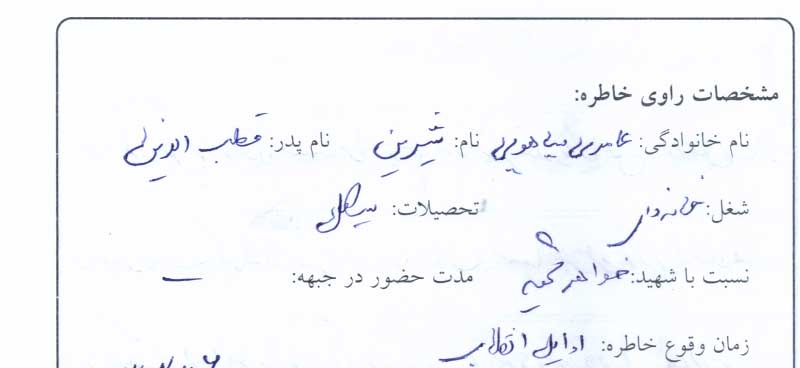 مشخصات راوی خاطره:
نام خانوادگی: نام: شیرین نام پدر: قطب الدین
شغل: خانه دار تحصیلات:
نسبت با شهید: خواهر مدت حضور در جبهه: —
زمان وقوع خاطره: اوایل انقلاب